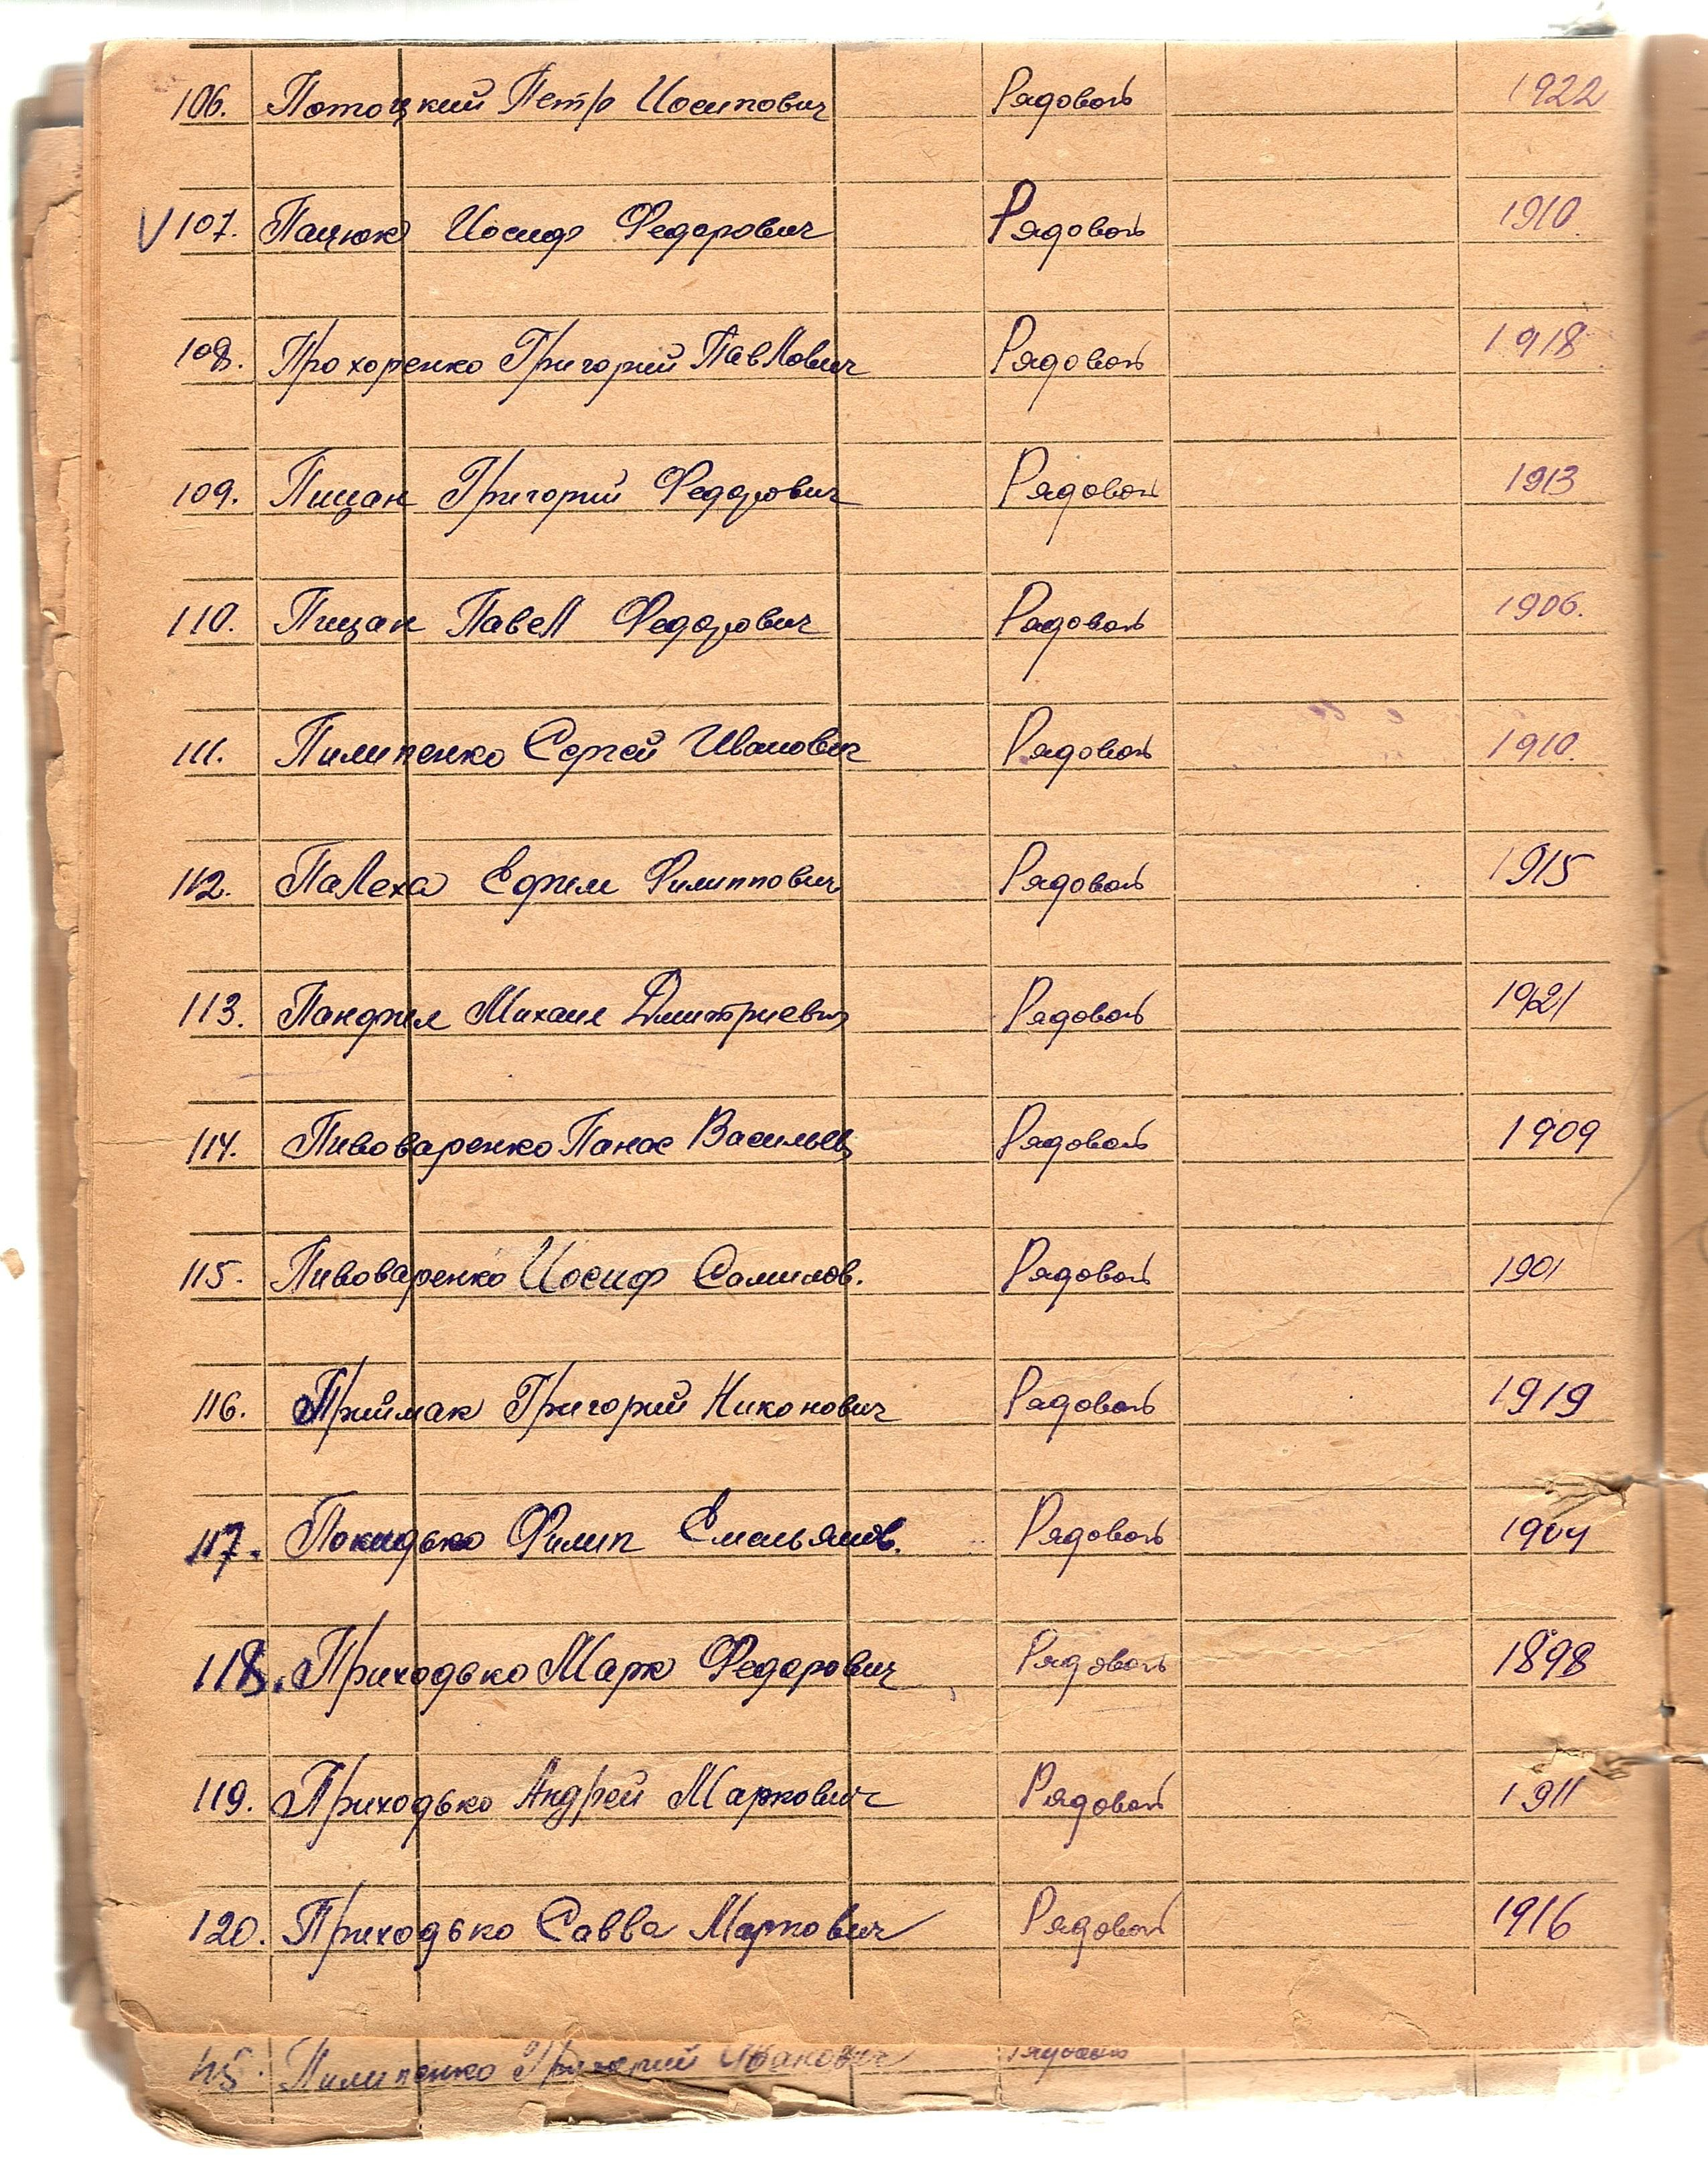 106. Потоцкий Петр Иосипович Рядовой 1922
V 107. Пацюк Иосиф Федорович Рядовой 1910.
108. Прохоренко Григорий Павлович Рядовой 1918
109. Пищан Григорий Федорович Рядовой 1913
110. Пищан Павел Федорович Рядовой 1906.
111. Пилипенко Сергей Иванович Рядовой 1910.
112. Палеха Ефим Филиппович Рядовой 1915
113. Панфил Михаил Дмитриевич Рядовой 1921
114. Пивоваренко Панас Васильев Рядовой 1909
115. Пивоваренко Иосиф Самилов. Рядовой 1901
116. Приймак Григорий Никонович Рядовой 1919
117. Покидько Филип Емельянов. Рядовой 1904
118. Приходько Марк Федорович Рядовой 1898
119. Приходько Андрей Маркович Рядовой 1911
120. Приходько Савва Маркович Рядовой 1916
Пилипенко Григорий Иванович Рядовой